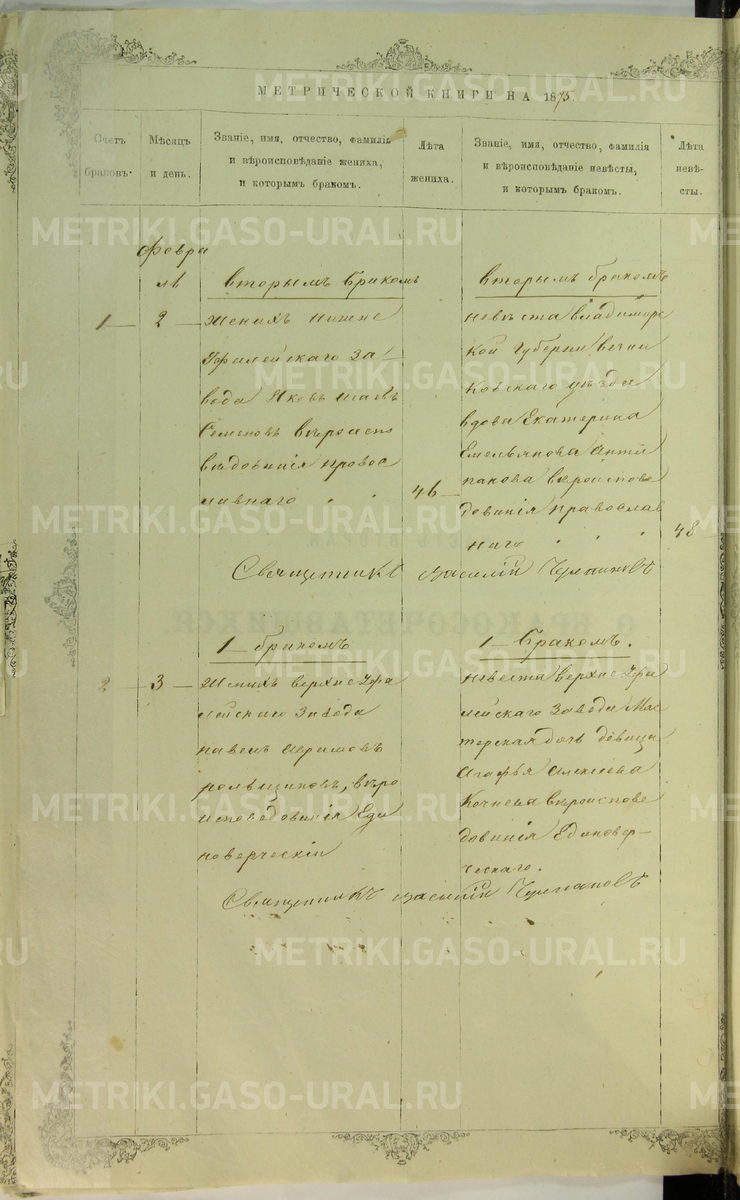 МЕТРИЧЕСКОЙ КНИГИ НА 1875.
Счетъ браковъ.
Мѣсяцъ и день.
Званіе, имя, отчество, фамилія
и вѣроисповѣданіе жениха,
и которымъ бракомъ.
Лѣта жениха.
Званіе, имя, отчество, фамилія
и вѣроисповѣданіе невѣсты,
и которымъ бракомъ.
Лѣта невѣ-
сты.
Февра
ль
1
2
вторымъ бракомъ
Женихъ Нижне
Уфалейскаго за
вода Яковъ
Семеновъ вѣроиспо
вѣданія правос
лавнаго
46
вторымъ бракомъ
Невѣста Владимірс
кой губерніи Вязни
ковскаго уѣзда
вдова Екатерина
Емельянова Анти
пакова вѣроиспове
дованія православ
наго
48
Священникъ Василій Черепановъ
2
3
1 – бракомъ
Женихъ верхне Уфа
лейскаго Завода
Павелъ
вѣро
исповедованія Еди
новерческій
1 – Бракомъ.
Невеста верхне Уфа
лейскаго Завода Мас
терская дочь девица
Агафья Алексеева
Кочнева вѣроиспове
дованія Единовер-
ческаго.
Священникъ Василій Черепановъ
METRIKI.GASO-URAL.RU